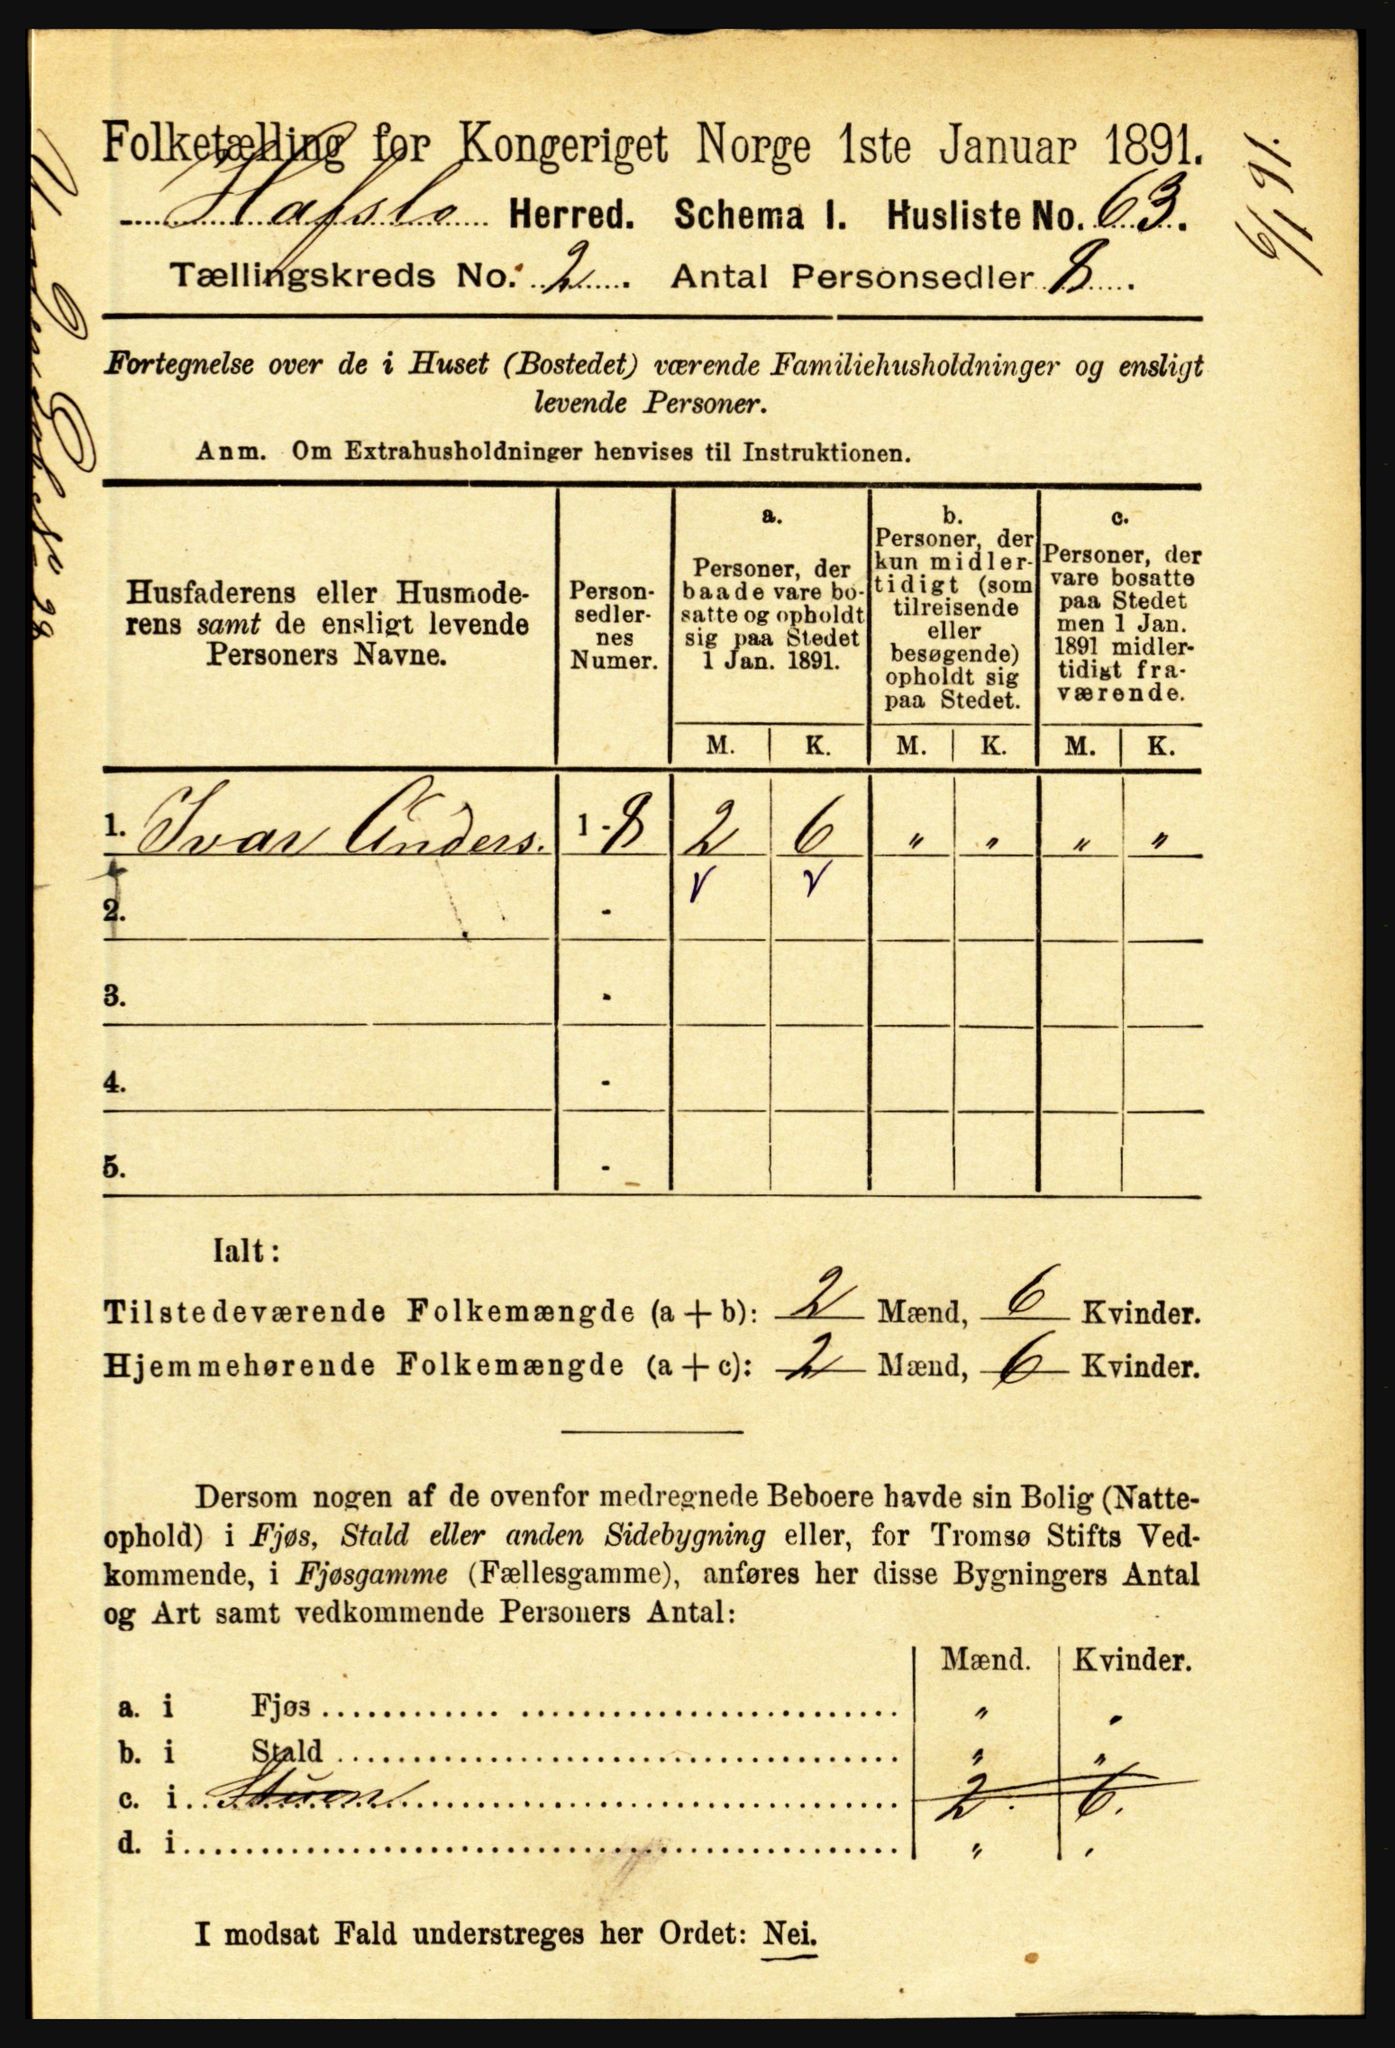 Folketælling for Kongeriget Norge 1ste Januar 1891.
Hafslo Herred. Schema I. Husliste No. 63.
Tællingskreds No. 2. Antal Personsedler 8.
6/1 91.
Fortegnelse over de i Huset (Bostedet) værende Familiehusholdninger og ensligt
levende Personer.
Anm. Om Extrahusholdninger henvises til Instruktionen.
Husfaderens eller Husmode-
rens samt de ensligt levende
Personers Navne.
Person-
sedler-
nes
Numer.
a.
Personer, der
baade vare bo-
satte og opholdt
sig paa Stedet
1 Jan. 1891.
b.
Personer, der
kun midler-
tidigt (som
tilreisende
eller
besøgende)
opholdt sig
paa Stedet.
c.
Personer, der
vare bosatte
paa Stedet
men 1 Jan.
1891 midler-
tidigt fra-
værende.
M. K. M. K. M. K.
1. Ivar Anders. 1-8 2 6 " " " "
v v
2. -
3. -
4. -
5. -
Ialt:
Tilstedeværende Folkemængde (a + b): 2 Mænd, 6 Kvinder.
Hjemmehørende Folkemængde (a + c): 2 Mænd, 6 Kvinder.
Dersom nogen af de ovenfor medregnede Beboere havde sin Bolig (Natte-
ophold) i Fjøs, Stald eller anden Sidebygning eller, for Tromsø Stifts Ved-
kommende, i Fjøsgamme (Fællesgamme), anføres her disse Bygningers Antal
og Art samt vedkommende Personers Antal:
Mænd. Kvinder.
a. i Fjøs " "
b. i Stald " "
c. i Stuen 2. 6.
d. i " "
I modsat Fald understreges her Ordet: Nei.